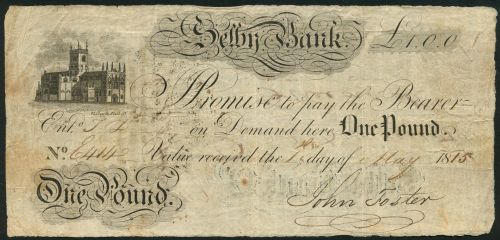 Selby Bank. £1.0.0
Promise to pay the Bearer
Ent.d on Demand here One Pound.
No. E414 Value received the 1st day of May 1815
One Pound.
John Foster